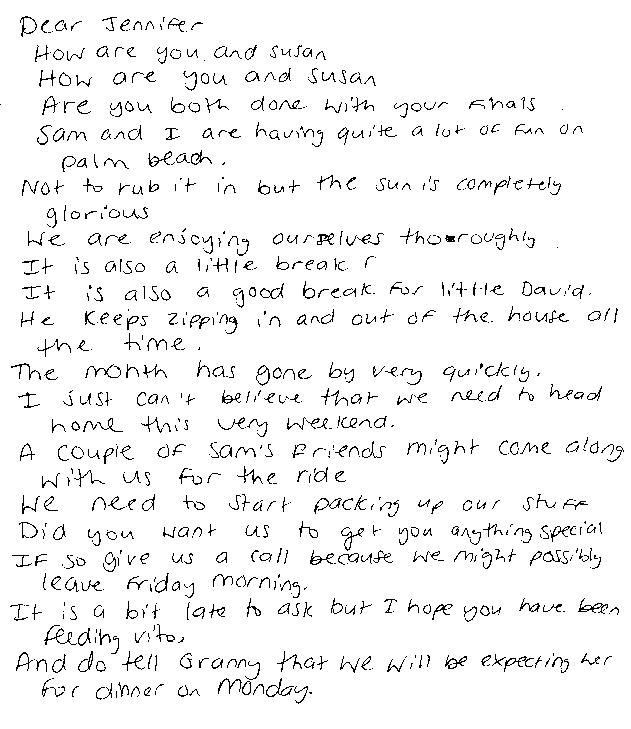 Dear Jennifer
How are you and susan
How are you and susan
Are you both done with your finals.
Sam and I are having quite a lot of fun on
palm beach.
Not to rub it in but the sun is completely
glorious
We are enjoying ourselves thoroughly.
It is also a little break f
It is also a good break for little David.
He keeps zipping in and out of the house all
the time.
The month has gone by very quickly.
I just can't believe that we need to head
home this very weekend.
A couple of Sam's friends might come along
with us for the ride
We need to start packing up our stuff
Did you want us to get you anything special
If so give us a call because we might possibly
leave Friday morning.
It is a bit late to ask but I hope you have been
feeding vito,
And do tell Granny that we will be expecting her
for dinner on Monday.